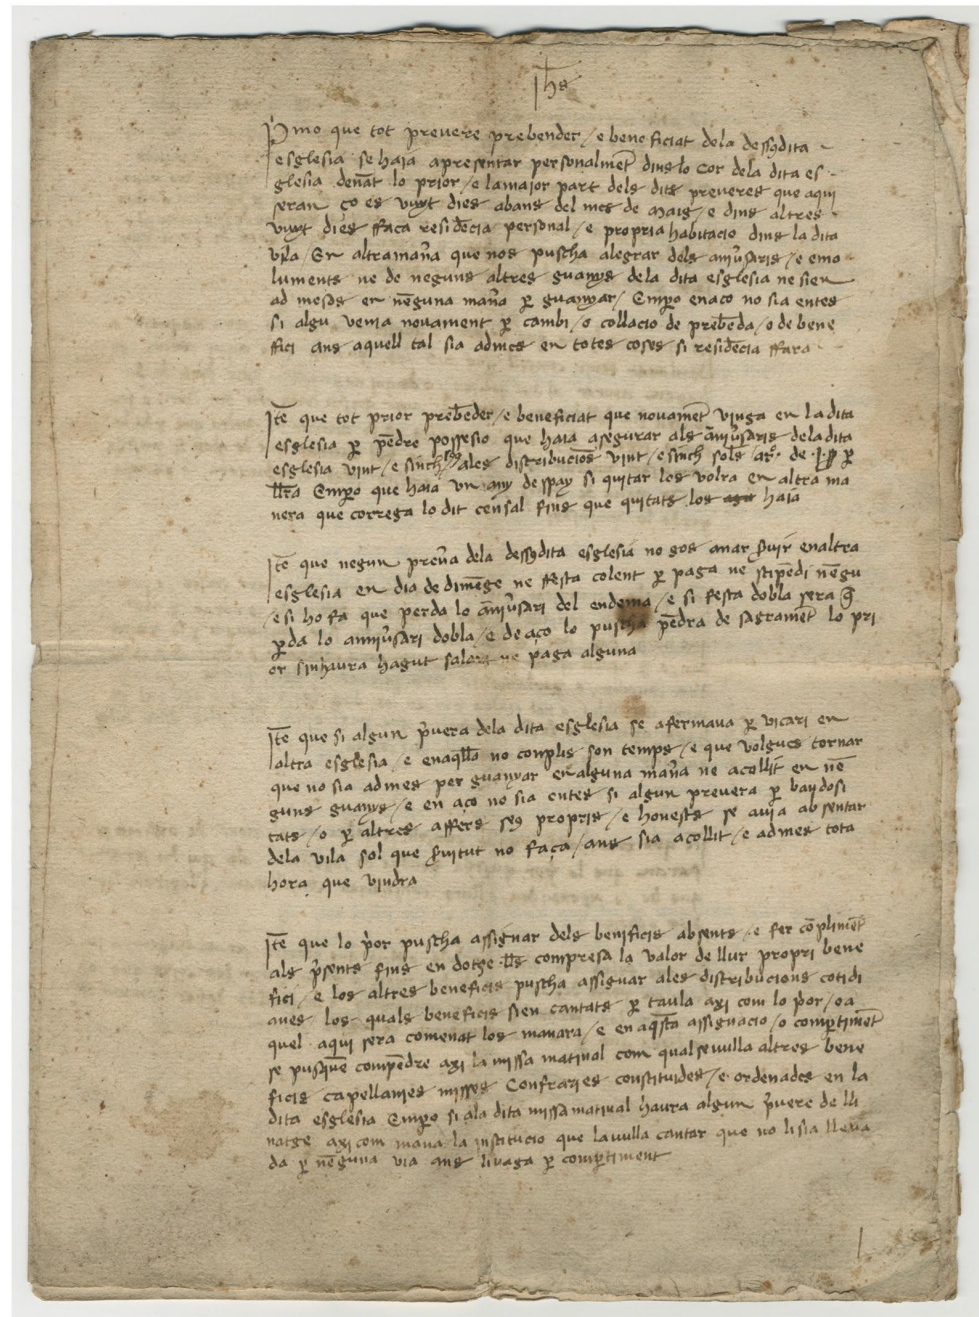 Jhs
Pmo que tot prevere prebender / e beneficiat dela dessydita
esglesia se haia apresentar personalmēt dins lo Cor dela dita es
glesia denāt lo prior / e lamajor part dels dits preveres que aqui
seran ço es vuyt dies abans del mes de Maig / e dins altres
vuyt dies ffaca residēcia personal / e propria habitacio dins la dita
vila / En altramaña que nos puscha alegrar dels añiṽsaris / e emo
luments ne de neguns altres guanys dela dita esglesia ne sien
ad meses en nēguna maña ꝑ guanyar / Emꝑo enaco no sia entes
si algu venia novament ꝑ cambi / o collacio de prebēda / o de bene
ffici ans aquell tal sia admes en totes coses si residēcia ffara
Jtē que tot prior prebēder / e beneficiat que novamēt vinga en la dita
esglesia ꝑ pēdre possesio que haia asegurar als āniṽsaris dela dita
esglesia vint / e sinch ss ales distribucions vint / e sinch sols de ꝑ
haia vn any de spay si quitar los volra en altra ma
nera que correga lo dit censal fins que quitats los haia
Jtē que negun preṽa dela dessydita esglesia no gos anar ẜvir enaltra
esglesia en dia de dimēge ne ffesta colent ꝑ paga ne stipēdi nēgu
/ e si ho fa que perda lo āniṽsari del endema / e si festa dobla sera
ꝑda lo anniṽsari dobla / e de aço lo puscha pēdra de sagramēt lo pri
or sinhaura hagut salari ne paga alguna
Jtē que si algun p̃vera dela dita esglesia se afermava ꝑ vicari en
altra esglesia / e enaqll̄a no complis son temps / e que volgues tornar
que no sia admes per guanyar enalguna maña ne acollit en nē
guns guanys / e en aço no sia entes si algun prevera ꝑ bandosi
tats / o ꝑ altres affers seus propris / e honests se avia absentar
dela vila sol que ẜvitut no faça / ans sia acollit / e admes tota
hora que vindra
Jtē que lo p̃or puscha assignar dels benificis absents / e fer cōplimēt
als p̃sents fins en dotze ll̄s compresa la valor de llur propri bene
fici / e los altres beneficis puscha assignar ales distribucions cotidi
anes los quals beneficis sien cantats ꝑ taula axi com lo p̃or / o a
quel aqui sera comenat los manara / e en aqsta assignacio / o comꝑtimēt
se pusquē compēdre axi la missa matinal com qualsevulla altres bene
ficis capellanies misses Confraries constituides / e ordenades en la
dita esglesia Emꝑo si ala dita missa matinal haura algun p̃vere de lli
natge axi com mana la institucio que lavulla cantar que no li sia lleva
da ꝑ nēguna via ans li vaga ꝑ comꝑtiment